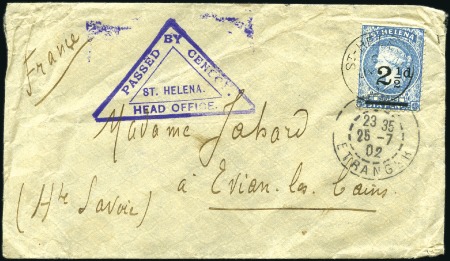 France
PASSED BY CENSOR
ST. HELENA.
HEAD OFFICE.
ST. HELENA
2½d
23 35
25-7
02
ETRANGER
Madame
à Evian-les-bains
(Hte Savoie)